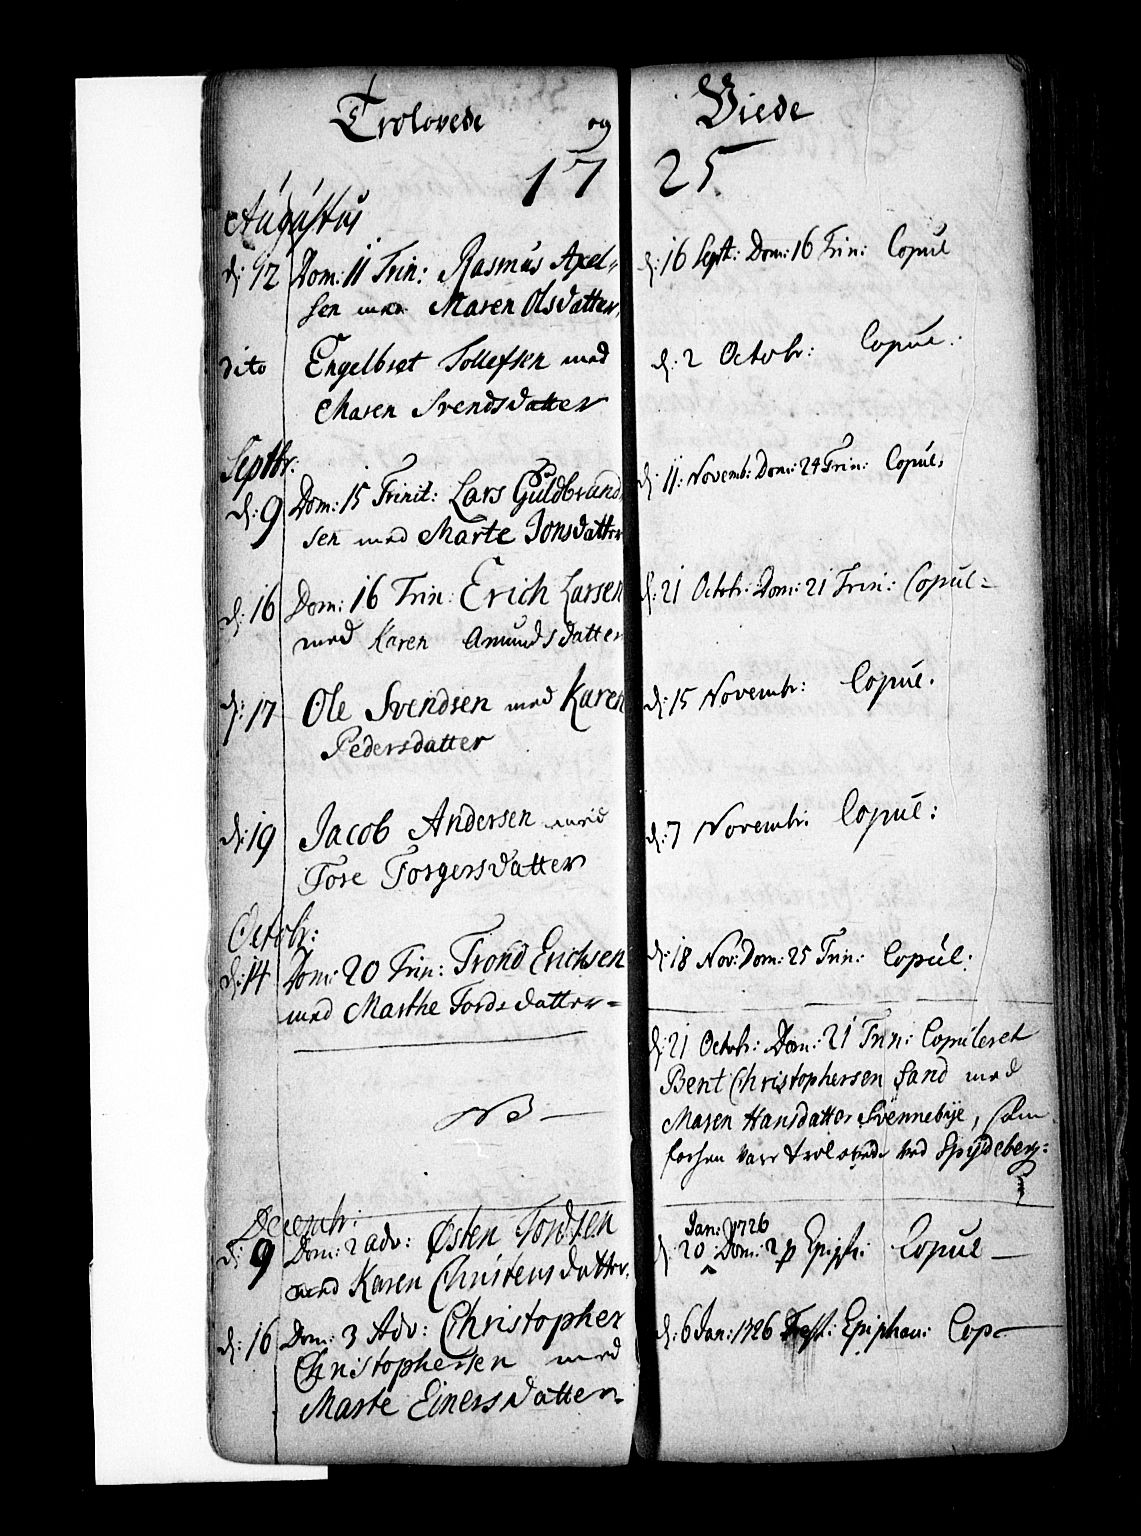 Trolovede og Viede
1725
Augustus
d: 12 Dom: 11 Trin: Rasmus Axel-
sen med Maren Olsdatter,
d: 16 Sept: Dom: 16 Trin: Copul
dito Engelbret Tollefsen med
Maren Svendsdatter
d: 2 Octobr: Copul.
Septbr:
d: 9 Dom: 15 Trinit: Lars Guldbrand
sen med Marte Jonsdatter
d: 11: Novemb: Dom: 24 Trin: Copul:
d: 16 Dom: 16 Trin: Erich Larsen
med Karen Amundsdatter
d: 21 Octobr: Dom: 21 Trin: Copul=
d: 17 Ole Svendsen med Karen
Pedersdatter
d: 15 Novembr: Copul.
d: 19 Jacob Andersen med
Tore Torgersdatter
d: 7 Novembr: Copul:
Octobr:
d: 14 Dom: 20 Trin: Trond Erichsen
med Marthe Tordsdatter=
d: 18 Nov: Dom: 25 Trin: Copul:
NB
d: 21 Octobr: Dom: 21 Trin: Copuleret
Bent Christophersen Sand med
Maren Hansdatter Svennebye, som
forhen var trolovede ved Spydeberg:
Decembr:
d: 9 Dom: 2 adv: Østen Tordsen
med Karen Christensdatter.
Jan: 1726
d: 20: Dom: 2 p Epiph: Copul
d: 16 Dom: 3 Adv: Christopher
Christophersen med
Marte Einersdatter
d: 6 Jan: 1726 Fest: Epiphan: Cop